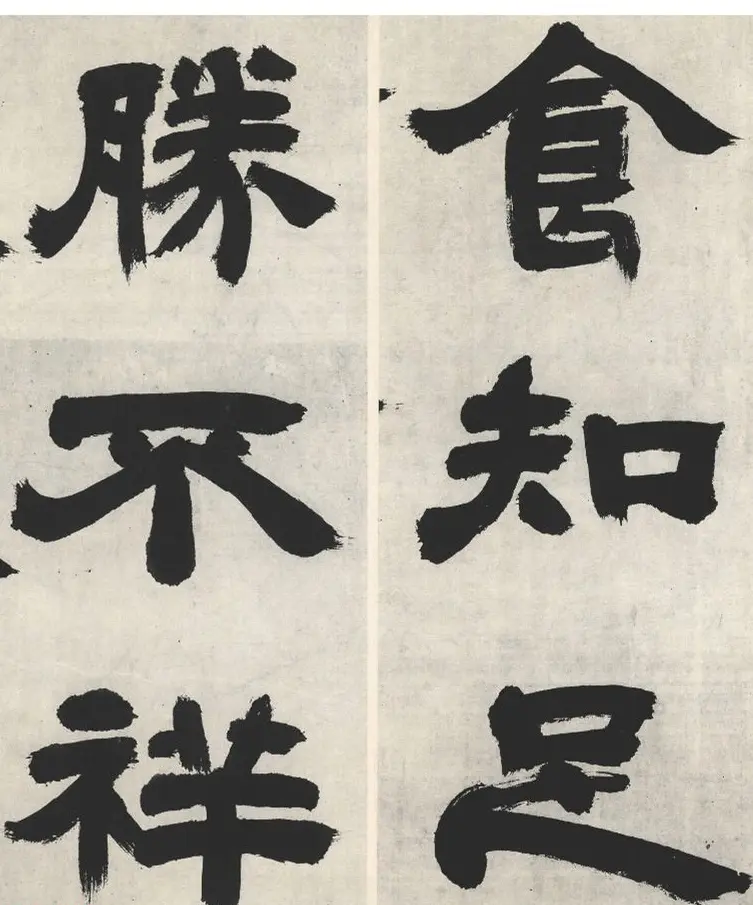 食知足
勝不祥